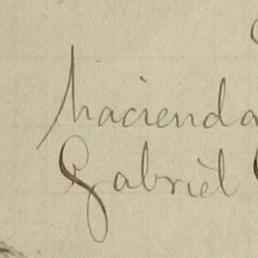 hacienda
Gabriel